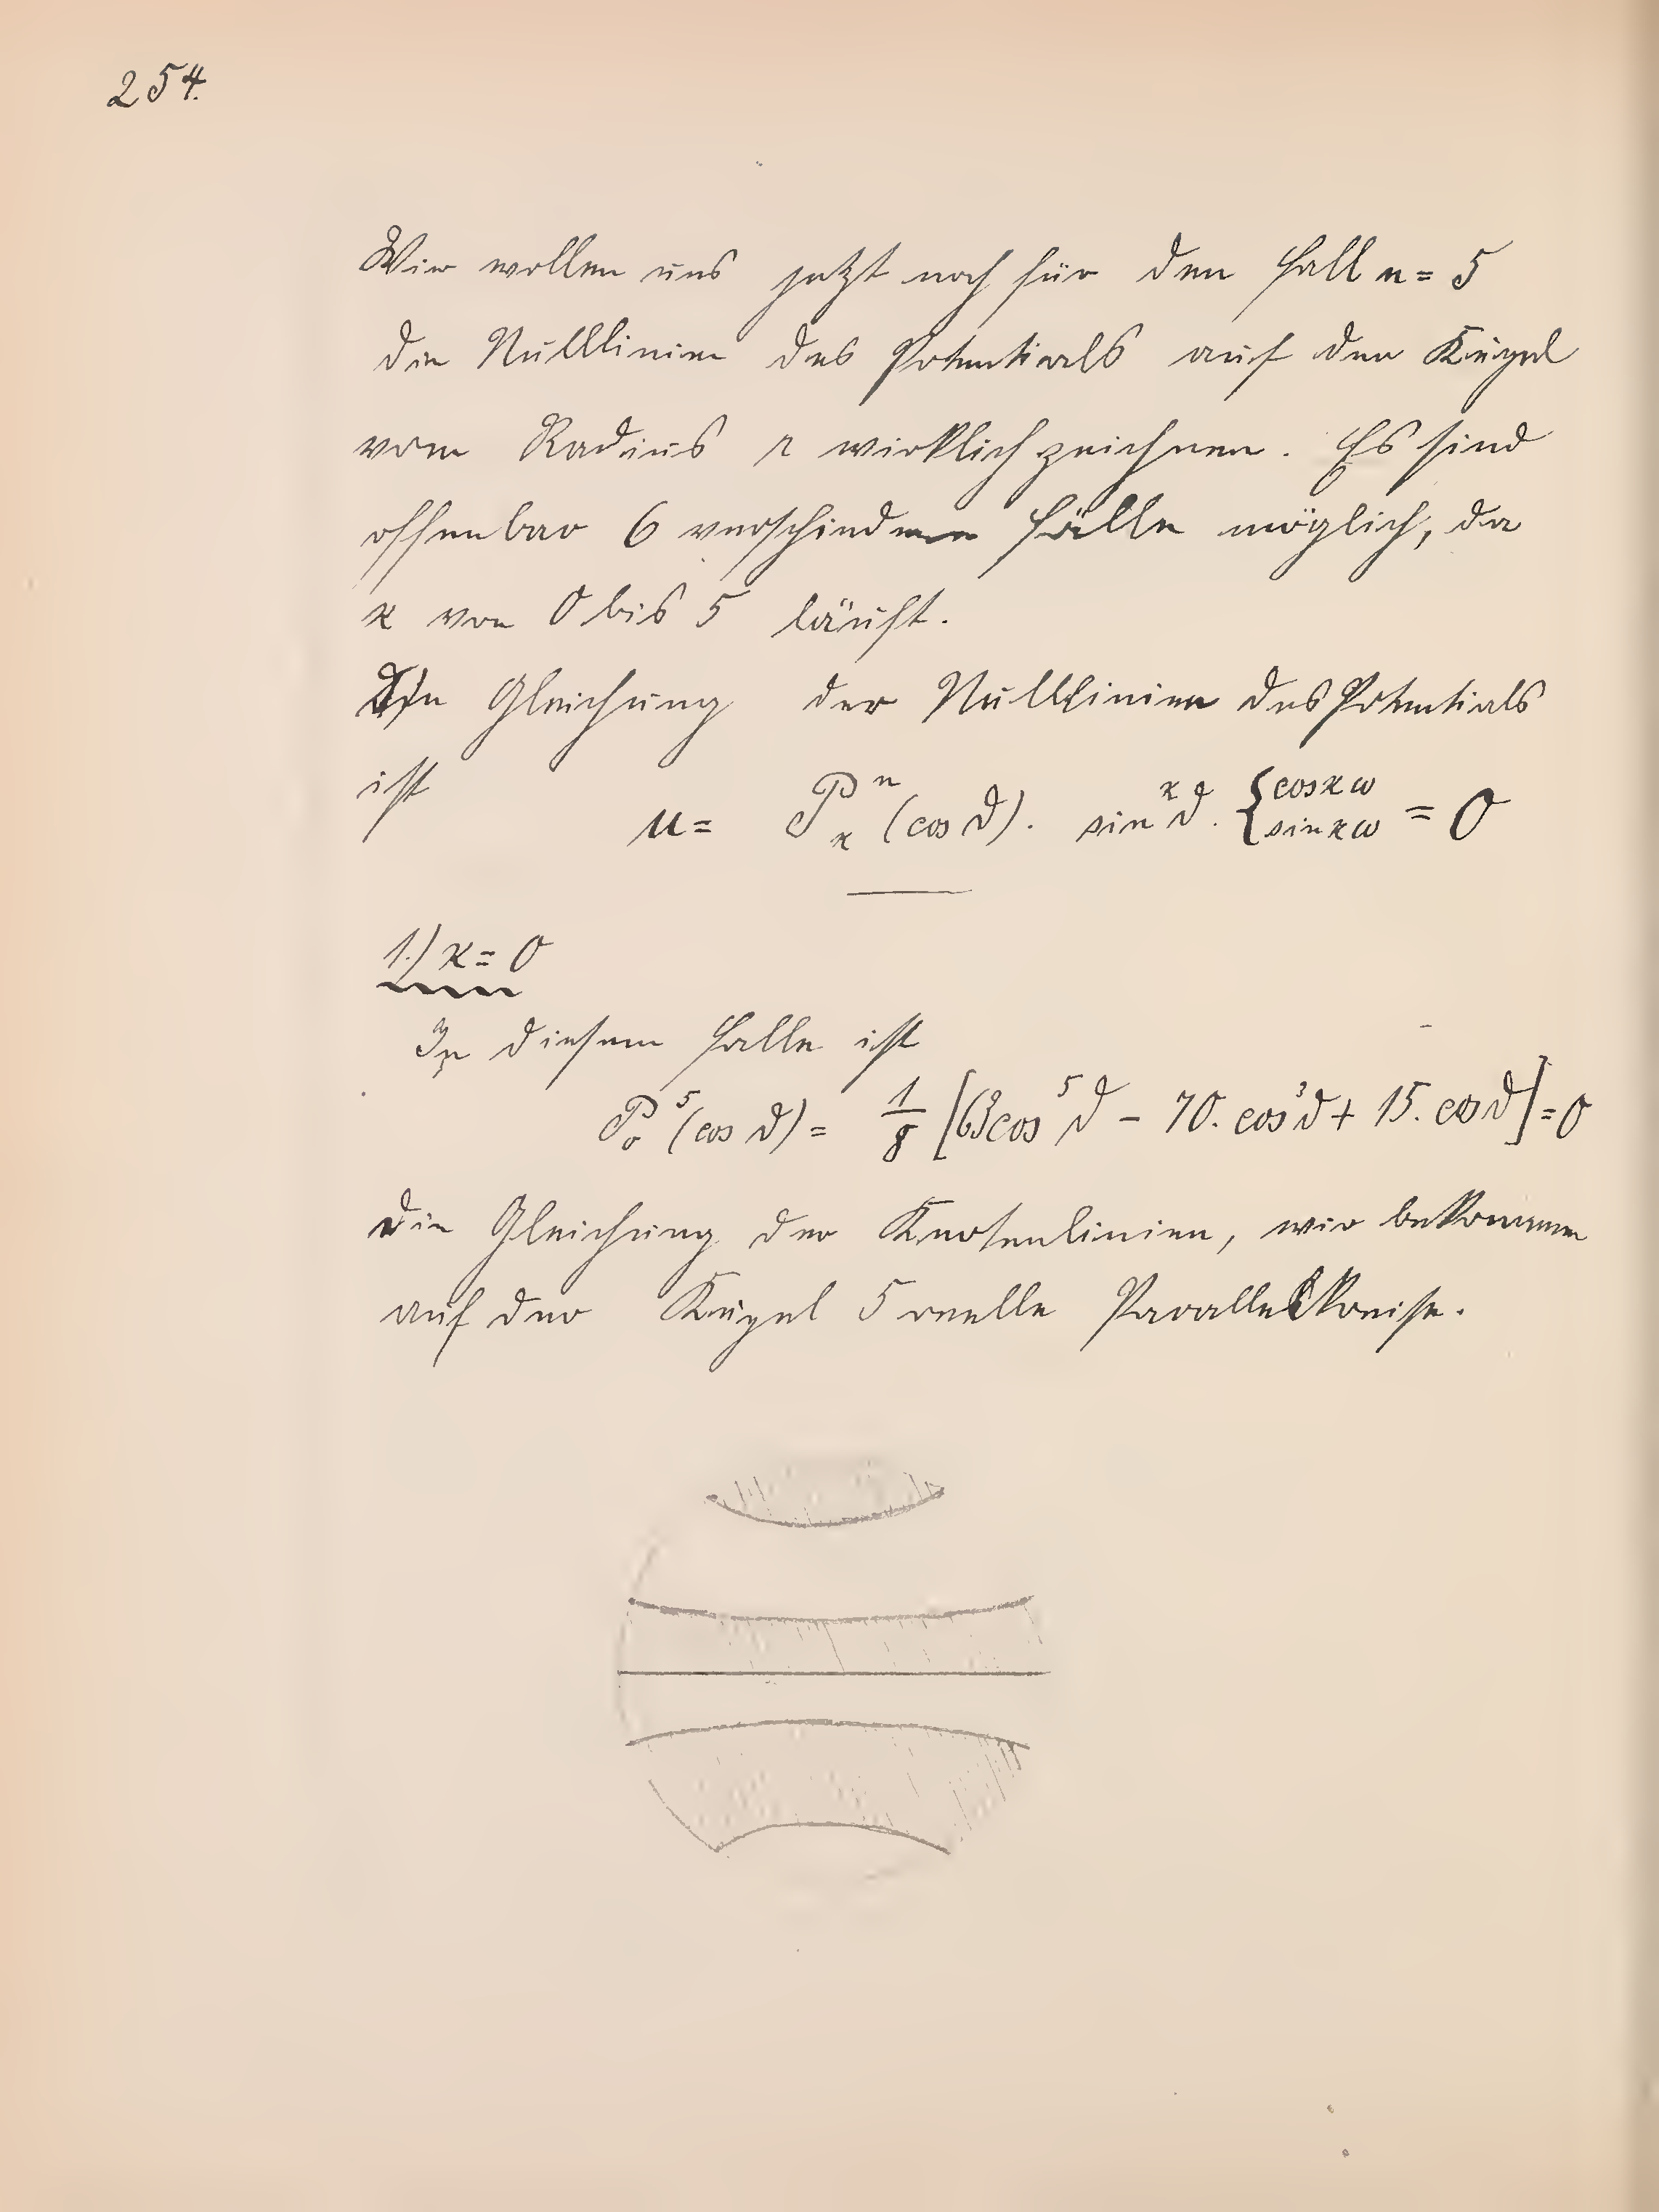 254.
Wir wollen uns jetzt noch für den Fall n = 5
die Nulllinien des Potentials auf der Kugel
vom Radius r wirklich zeichnen. Es sind
offenbar 6 verschiedene Fälle möglich, da
ϰ von 0 bis 5 läuft.
Die Gleichung der Nulllinien des Potentials
ist
u = P^n_ϰ (cos ϑ) . sin^ϰ ϑ . { cos ϰω / sin ϰω = 0
1.) ϰ = 0
In diesem Falle ist
P^5_0 (cos ϑ) = 1/8 [63 cos^5 ϑ − 70. cos^3 ϑ + 15. cos ϑ] = 0
die Gleichung der Knotenlinien, wir bekommen
auf der Kugel 5 reelle Parallelkreise.